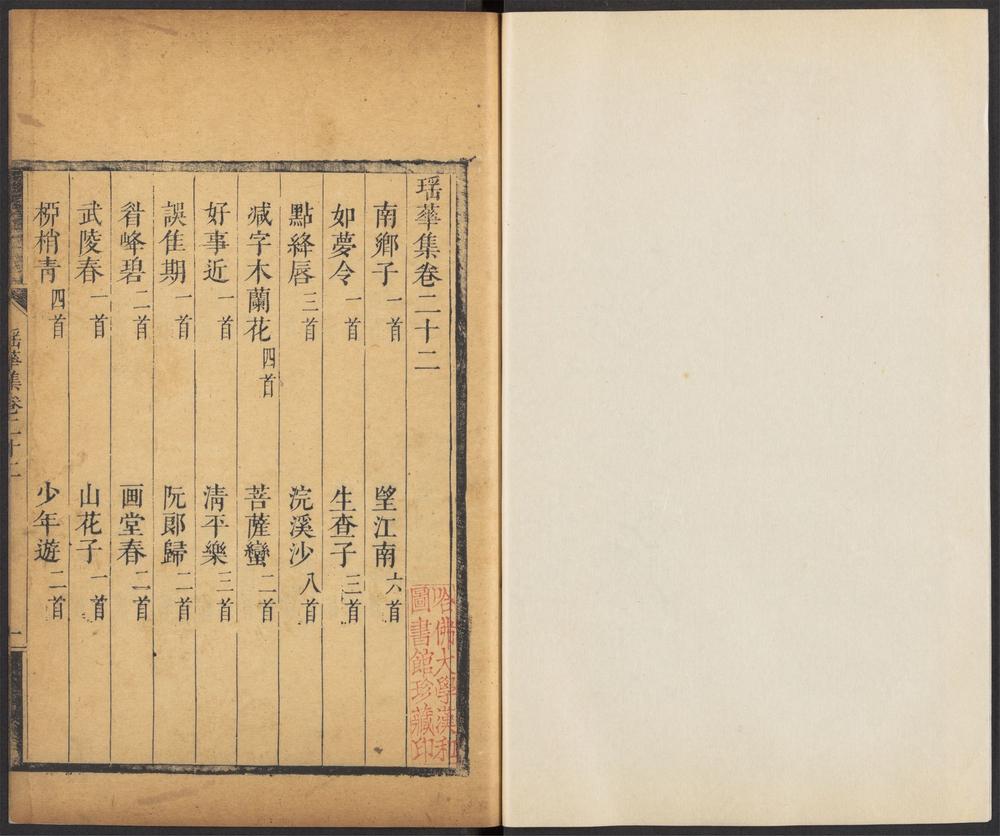 瑶華集卷二十二
南鄉子一首　望江南六首
如夢令一首　生查子三首
點絳唇三首　浣溪沙八首
减字木蘭花四首　菩薩蠻二首
好事近一首　清平樂三首
誤佳期一首　阮郎歸二首
睂峰碧二首　画堂春二首
武陵春一首　山花子一首
桺梢青四首　少年遊二首
瑶華集卷二十二
一
哈佛大學漢和
圖書館珍藏印